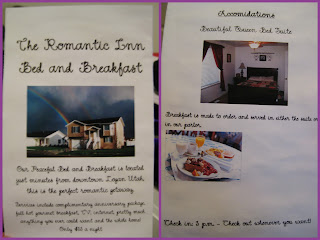 The Romantic Inn
Bed and Breakfast
Our Peaceful Bed and Breakfast is located
just minutes from downtown Logan Utah,
this is the perfect romantic getaway.
Services include complimentary anniversary package,
full hot gourmet breakfast, TV, internet, pretty much
anything you ever could want and the whole home!
Only a night
Accomidations
Beautiful Queen Bed Suite
Breakfast is made to order and served in either the suite or
in our parlor.
Check in 3 p.m. - Check out whenever you want!!